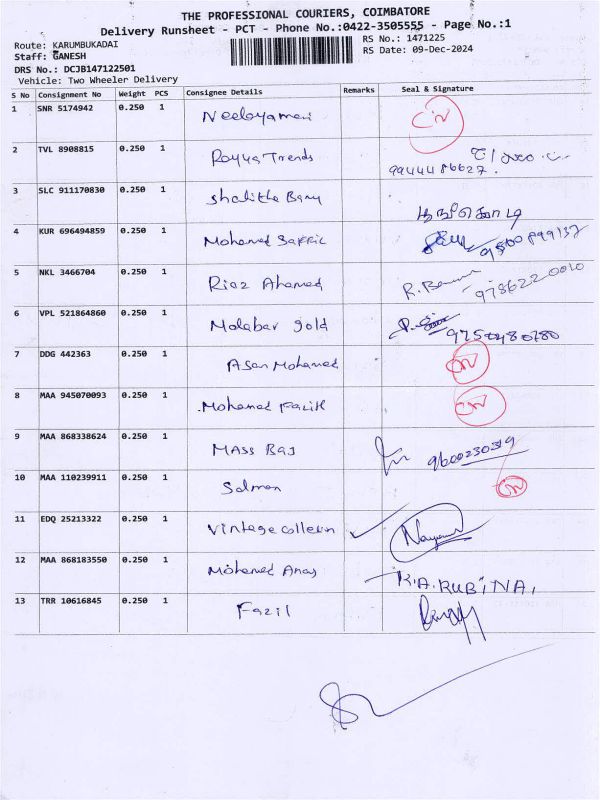 THE PROFESSIONAL COURIERS, COIMBATORE
Delivery Runsheet - PCT - Phone No.:0422-3505555 - Page No.:1
Route: KARUMBUKADAI
RS No.: 1471225
Staff: GANESH
RS Date: 09-Dec-2024
DRS No.: DCJB147122501
Vehicle: Two Wheeler Delivery
S No Consignment No Weight PCS Consignee Details Remarks Seal & Signature
1 SNR 5174942 0.250 1
2 TVL 8908815 0.250 1 Royya Trends
9944486627.
3 SLC 911170830 0.250 1
4 KUR 696494859 0.250 1 Mohamed
5 NKL 3466704 0.250 1 Riaz Ahamed 9786220010
6 VPL 521864860 0.250 1 Malabar gold
7 DDG 442363 0.250 1 Asan Mohamed
8 MAA 945070093 0.250 1 Mohamed Fazil
9 MAA 868338624 0.250 1 MASS Bag 9600230319
10 MAA 110239911 0.250 1 Salman
11 EDQ 25213322 0.250 1 Vintage
12 MAA 868183550 0.250 1 Mohamed Anas K.A.RUBINA,
13 TRR 10616845 0.250 1 Fazil